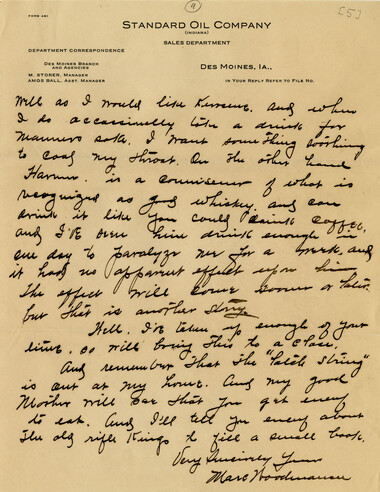 4
[5]
FORM 481
STANDARD OIL COMPANY
(INDIANA)
SALES DEPARTMENT
DEPARTMENT CORRESPONDENCE
DES MOINES BRANCH
AND AGENCIES
M. STORER, MANAGER
AMOS BALL, ASST. MANAGER
DES MOINES, IA.,
IN YOUR REPLY REFER TO FILE NO.
Well as I would like Kerosene. And when
I do occassinally take a drink for
manners sake. I want something soothing
to coat my throat. On the other hand
is a connisseur of what is
recognized as good whiskey. and can
drink it like you could drink coffee.
and I've seen him drink enough in
one day to paralyze me for a week, and
it had no apparent effect upon him
The effect will come sooner or later.
but that is another story.
Well. I've taken up enough of your
time, so will bring this to a close.
And remember that the "latch string"
is out at my home. And my good
Mother will see that you get enuf
to eat. And I'll tell you enuf about
the old rifle Kings to fill a small book.
Very Sincerely Yours
Marc Woodmansee